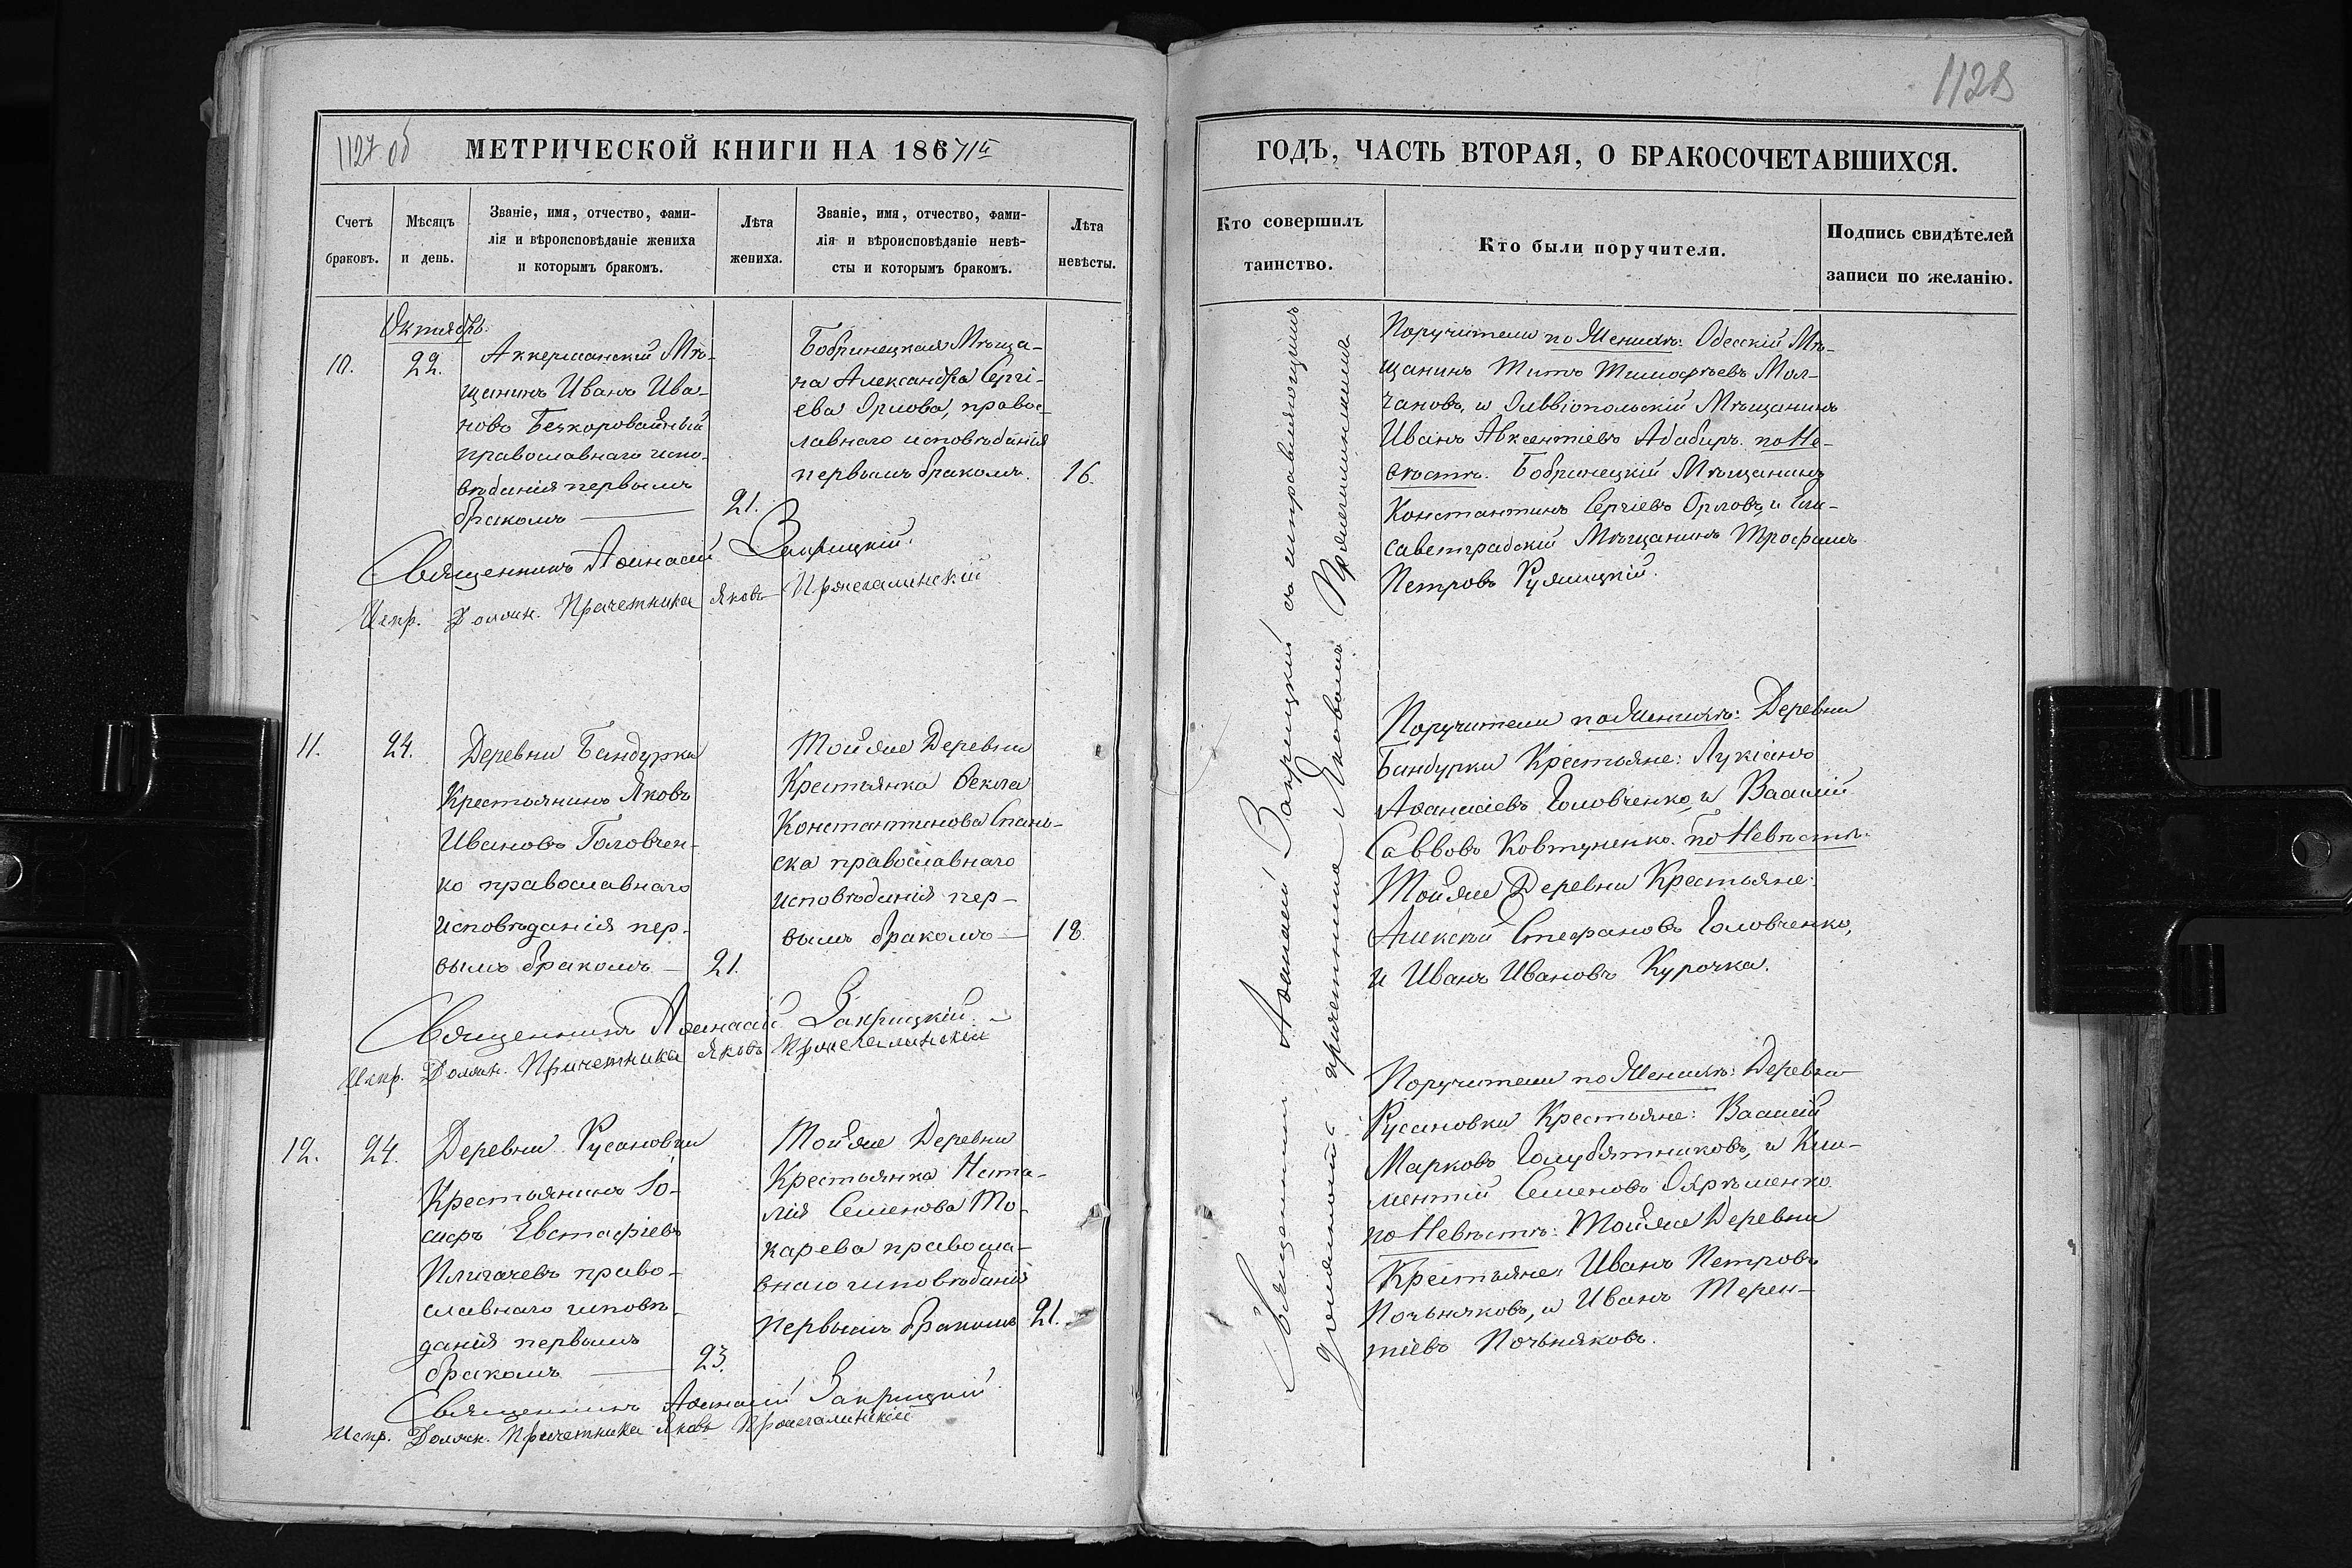 1127 об
МЕТРИЧЕСКОЙ КНИГИ НА 1867й
Счетъ
браковъ.
Мѣсяцъ
и день.
Званіе, имя, отчество, фами-
лія и вѣроисповѣданіе жениха
и которымъ бракомъ.
Лѣта
жениха.
Званіе, имя, отчество, фами-
лія и вѣроисповѣданіе невѣ-
сты и которымъ бракомъ.
Лѣта
невѣсты.
Октябрь.
10.
22.
Аккерманскій Мѣ-
щанинъ Иванъ Ива-
новъ Безкоровайный
православнаго испо-
вѣданія первымъ
бракомъ
21.
Бобринецкая Мѣща-
на Александра Сергі-
ева Орлова, правос-
лавнаго исповѣданія
первымъ бракомъ.
16.
Священникъ Аѳанасій Закрицкій.
Испр. Должн. Причетника Яковъ
11.
24.
Деревни Бандурки
Крестьянинъ Яковъ
Ивановъ Головчен-
ко православнаго
исповѣданія пер-
вымъ бракомъ
21.
Тойже Деревни
Крестьянка Ѳекла
Константинова
ска православнаго
исповѣданія пер-
вымъ бракомъ
18.
Священникъ Аѳанасій Закрицкій.
Испр. Должн. Причетника Яковъ
12.
24.
Деревни Русановки
Крестьянинъ Іо-
сифъ Евстафіевъ
право-
славнаго исповѣ-
данія первымъ
бракомъ
23.
Тойже Деревни
Крестьянка Ната-
лія Семенова То-
карева правосла-
внаго исповѣданія
первымъ бракомъ
21.
Священникъ Аѳанасій Закрицкій
Испр. Должн. Причетника Яковъ
1128
ГОДЪ, ЧАСТЬ ВТОРАЯ, О БРАКОСОЧЕТАВШИХСЯ.
Кто совершилъ
таинство.
Кто были поручители.
Подпись свидѣтелей
записи по желанію.
Священникъ Аѳанасій Закрицкій съ исправляющимъ
должность причетника Яковомъ
Поручители по Женихѣ: Одесскій Мѣ-
щанинъ Титъ Тимофѣевъ Мол-
чановъ, и Ольвіопольскій Мѣщанинъ
Иванъ Авксентіевъ Адабиръ. по Не-
вѣстѣ. Бобринецкій Мѣщанинъ
Константинъ Сергіевъ Орловъ, и Ели-
саветградскій Мѣщанинъ Трофимъ
Петровъ
Поручители по Женихѣ: Деревни
Бандурки Крестьяне: Лукіанъ
Аѳанасіевъ Головченко, и Василій
Саввовъ Ковтуненко. по Невѣстѣ.
Тойже Деревни Крестьяне:
Алексѣй Стефановъ Головченко,
и Иванъ Ивановъ Курочка.
Поручители по Женихѣ: Деревни
Русановки Крестьяне: Василій
Марковъ Голубятниковъ, и Кли-
ментій Семеновъ
по Невѣстѣ: Тойже Деревни
Крестьяне: Иванъ Петровъ
и Иванъ Терен-
тіевъ